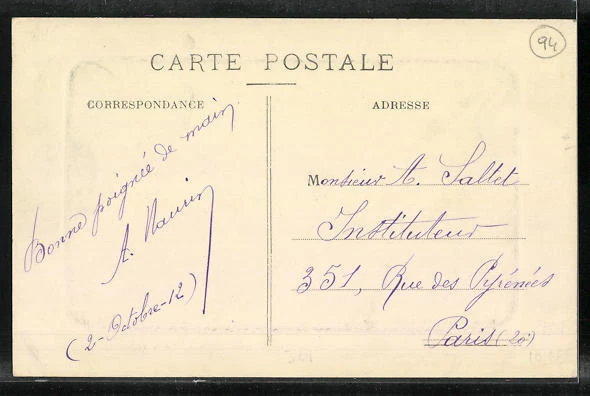 94
CARTE POSTALE
CORRESPONDANCE
ADRESSE
Bonne poignée de main
A. Naurin
(2-Octobre-12)
Monsieur A. Saltet
Instituteur
351, Rue des Pyrénées
Paris (20e)